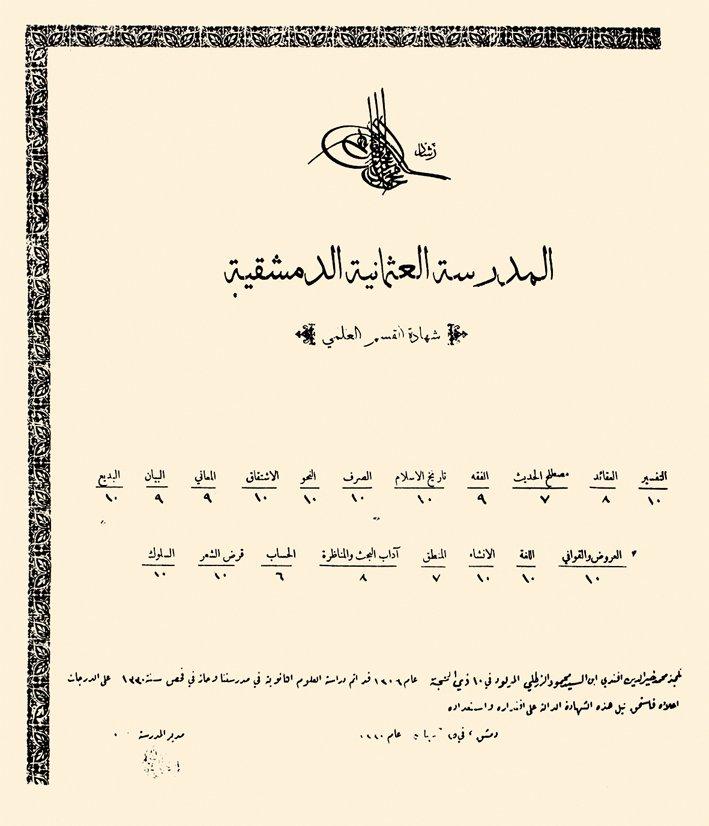 رشاد
المدرسة العثمانية الدمشقية
شهادة القسم العلمي
التفسير العقائد مصطلح الحديث الفقه تاريخ الاسلام الصرف النحو الاشتقاق المعاني البيان البديع
١٠ ٨ ٧ ٩ ١٠ ١٠ ١٠ ١٠ ٩ ٩ ١٠
العروض والقوافي اللغة الانشاء المنطق آداب البحث والمناظرة الحساب قرض الشعر السلوك
١٠ ١٠ ١٠ ٧ ٨ ٦ ١٠ ١٠
محمد خيرالدين افندي ابن السيد محمود الزركلي المولود في ١٠ ذي الحجة عام ١٣٠٦ قد اتم دراسة العلوم الثانوية في مدرستنا وحاز في فحص سنة ١٣٣٠ على الدرجات
اعلاه فاستحق نيل هذه الشهادة الدالة على اقتداره واستعداده
دمشق في عام
مدير المدرسة